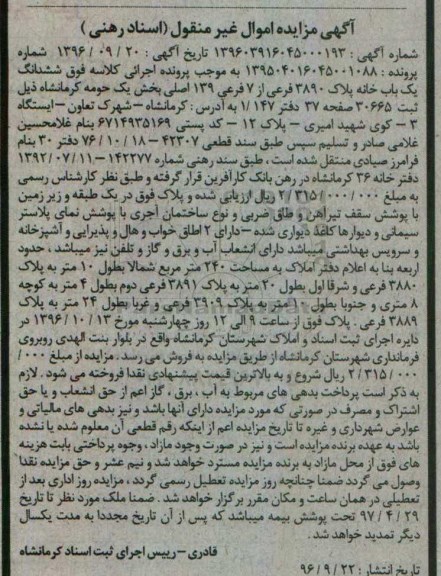 آگهی مزایده اموال غیر منقول (اسناد رهنی)
شماره آگهی : ۱۳۹۶۰۳۹۱۶۰۴۵۰۰۰۱۹۳ تاریخ آگهی : ۲۰ / ۰۹ / ۱۳۹۶ شماره
پرونده : ۱۳۹۵۰۴۰۱۶۰۴۵۰۰۱۰۸۸ به موجب پرونده اجرائی کلاسه فوق ششدانگ
یک باب خانه پلاک ۳۸۹۰ فرعی از ۷ فرعی ۱۳۹ اصلی بخش یک حومه کرمانشاه ذیل
ثبت ۳۰۶۶۵ صفحه ۳۷ دفتر ۱۴۷ /۱ به آدرس : کرمانشاه – شهرک تعاون – ایستگاه
۳ – کوی شهید امیری – پلاک ۱۲ – کد پستی ۶۷۱۴۹۳۵۱۶۹ بنام غلامحسین
غلامی صادر و تسلیم سپس طبق سند قطعی ۴۲۳۰۷ – ۱۸ /۱۰ / ۷۶ دفتر ۳۰ بنام
فرامرز صیادی منتقل شده است ، طبق سند رهنی شماره ۱۴۲۲۷۷ – ۱۱ /۰۷ /۱۳۹۲
دفتر خانه ۳۶ کرمانشاه در رهن بانک کارآفرین قرار گرفته و طبق نظر کارشناس رسمی
به مبلغ ۰۰۰/ ۰۰۰/ ۳۱۵/ ۲ ریال ارزیابی شده و پلاک فوق در یک طبقه و زیر زمین
با پوشش سقف تیرآهن و طاق ضربی و نوع ساختمان آجری با پوشش نمای پلاستر
سیمانی و دیوارها کاغذ دیواری شده – دارای ۲ اطاق خواب و هال و پذیرایی و آشپزخانه
و سرویس بهداشتی میباشد دارای انشعاب آب و برق و گاز و تلفن نیز میباشد ، حدود
اربعه بنا به اعلام دفتر املاک به مساحت ۲۴۰ متر مربع شمالا بطول ۱۰ متر به پلاک
۳۸۸۰ فرعی و شرقا اول بطول ۲۰ متر به پلاک ۳۸۹۱ فرعی دوم بطول ۴ متر به کوچه
۸ متری و جنوبا بطول ۱۰ متر به پلاک ۳۹۰۹ فرعی و غربا بطول ۲۴ متر به پلاک
۳۸۸۹ فرعی . پلاک فوق از ساعت ۹ الی ۱۲ روز چهارشنبه مورخ ۱۳ / ۱۰ / ۱۳۹۶ در
دایره اجرای ثبت اسناد و املاک شهرستان کرمانشاه واقع در بلوار بنت الهدی روبروی
فرمانداری شهرستان کرمانشاه از طریق مزایده به فروش می رسد . مزایده از مبلغ ۰۰۰/
۰۰۰/ ۳۱۵/ ۲ ریال شروع و به بالاترین قیمت پیشنهادی نقدا فروخته می شود . لازم
به ذکر است پرداخت بدهی های مربوط به آب ، برق ، گاز اعم از حق انشعاب و یا حق
اشتراک و مصرف در صورتی که مورد مزایده دارای آنها باشد و نیز بدهی های مالیاتی و
عوارض شهرداری و غیره تا تاریخ مزایده اعم از اینکه رقم قطعی آن معلوم شده یا نشده
باشد به عهده برنده مزایده است و نیز در صورت وجود مازاد ، وجوه پرداختی بابت هزینه
های فوق از محل مازاد به برنده مزایده مسترد خواهد شد و نیم عشر و حق مزایده نقدا
وصول می گردد ضمنا چنانچه روز مزایده تعطیل رسمی گردد ، مزایده روز اداری بعد از
تعطیلی در همان ساعت و مکان مقرر برگزار خواهد شد . ضمنا ملک مورد نظر تا تاریخ
۲۹ / ۴ / ۹۷ تحت پوشش بیمه میباشد که پس از آن تاریخ مجددا به مدت یکسال
دیگر تمدید خواهد شد .
قادری – رییس اجرای ثبت اسناد کرمانشاه
تاریخ انتشار : ۲۲ / ۹ / ۹۶